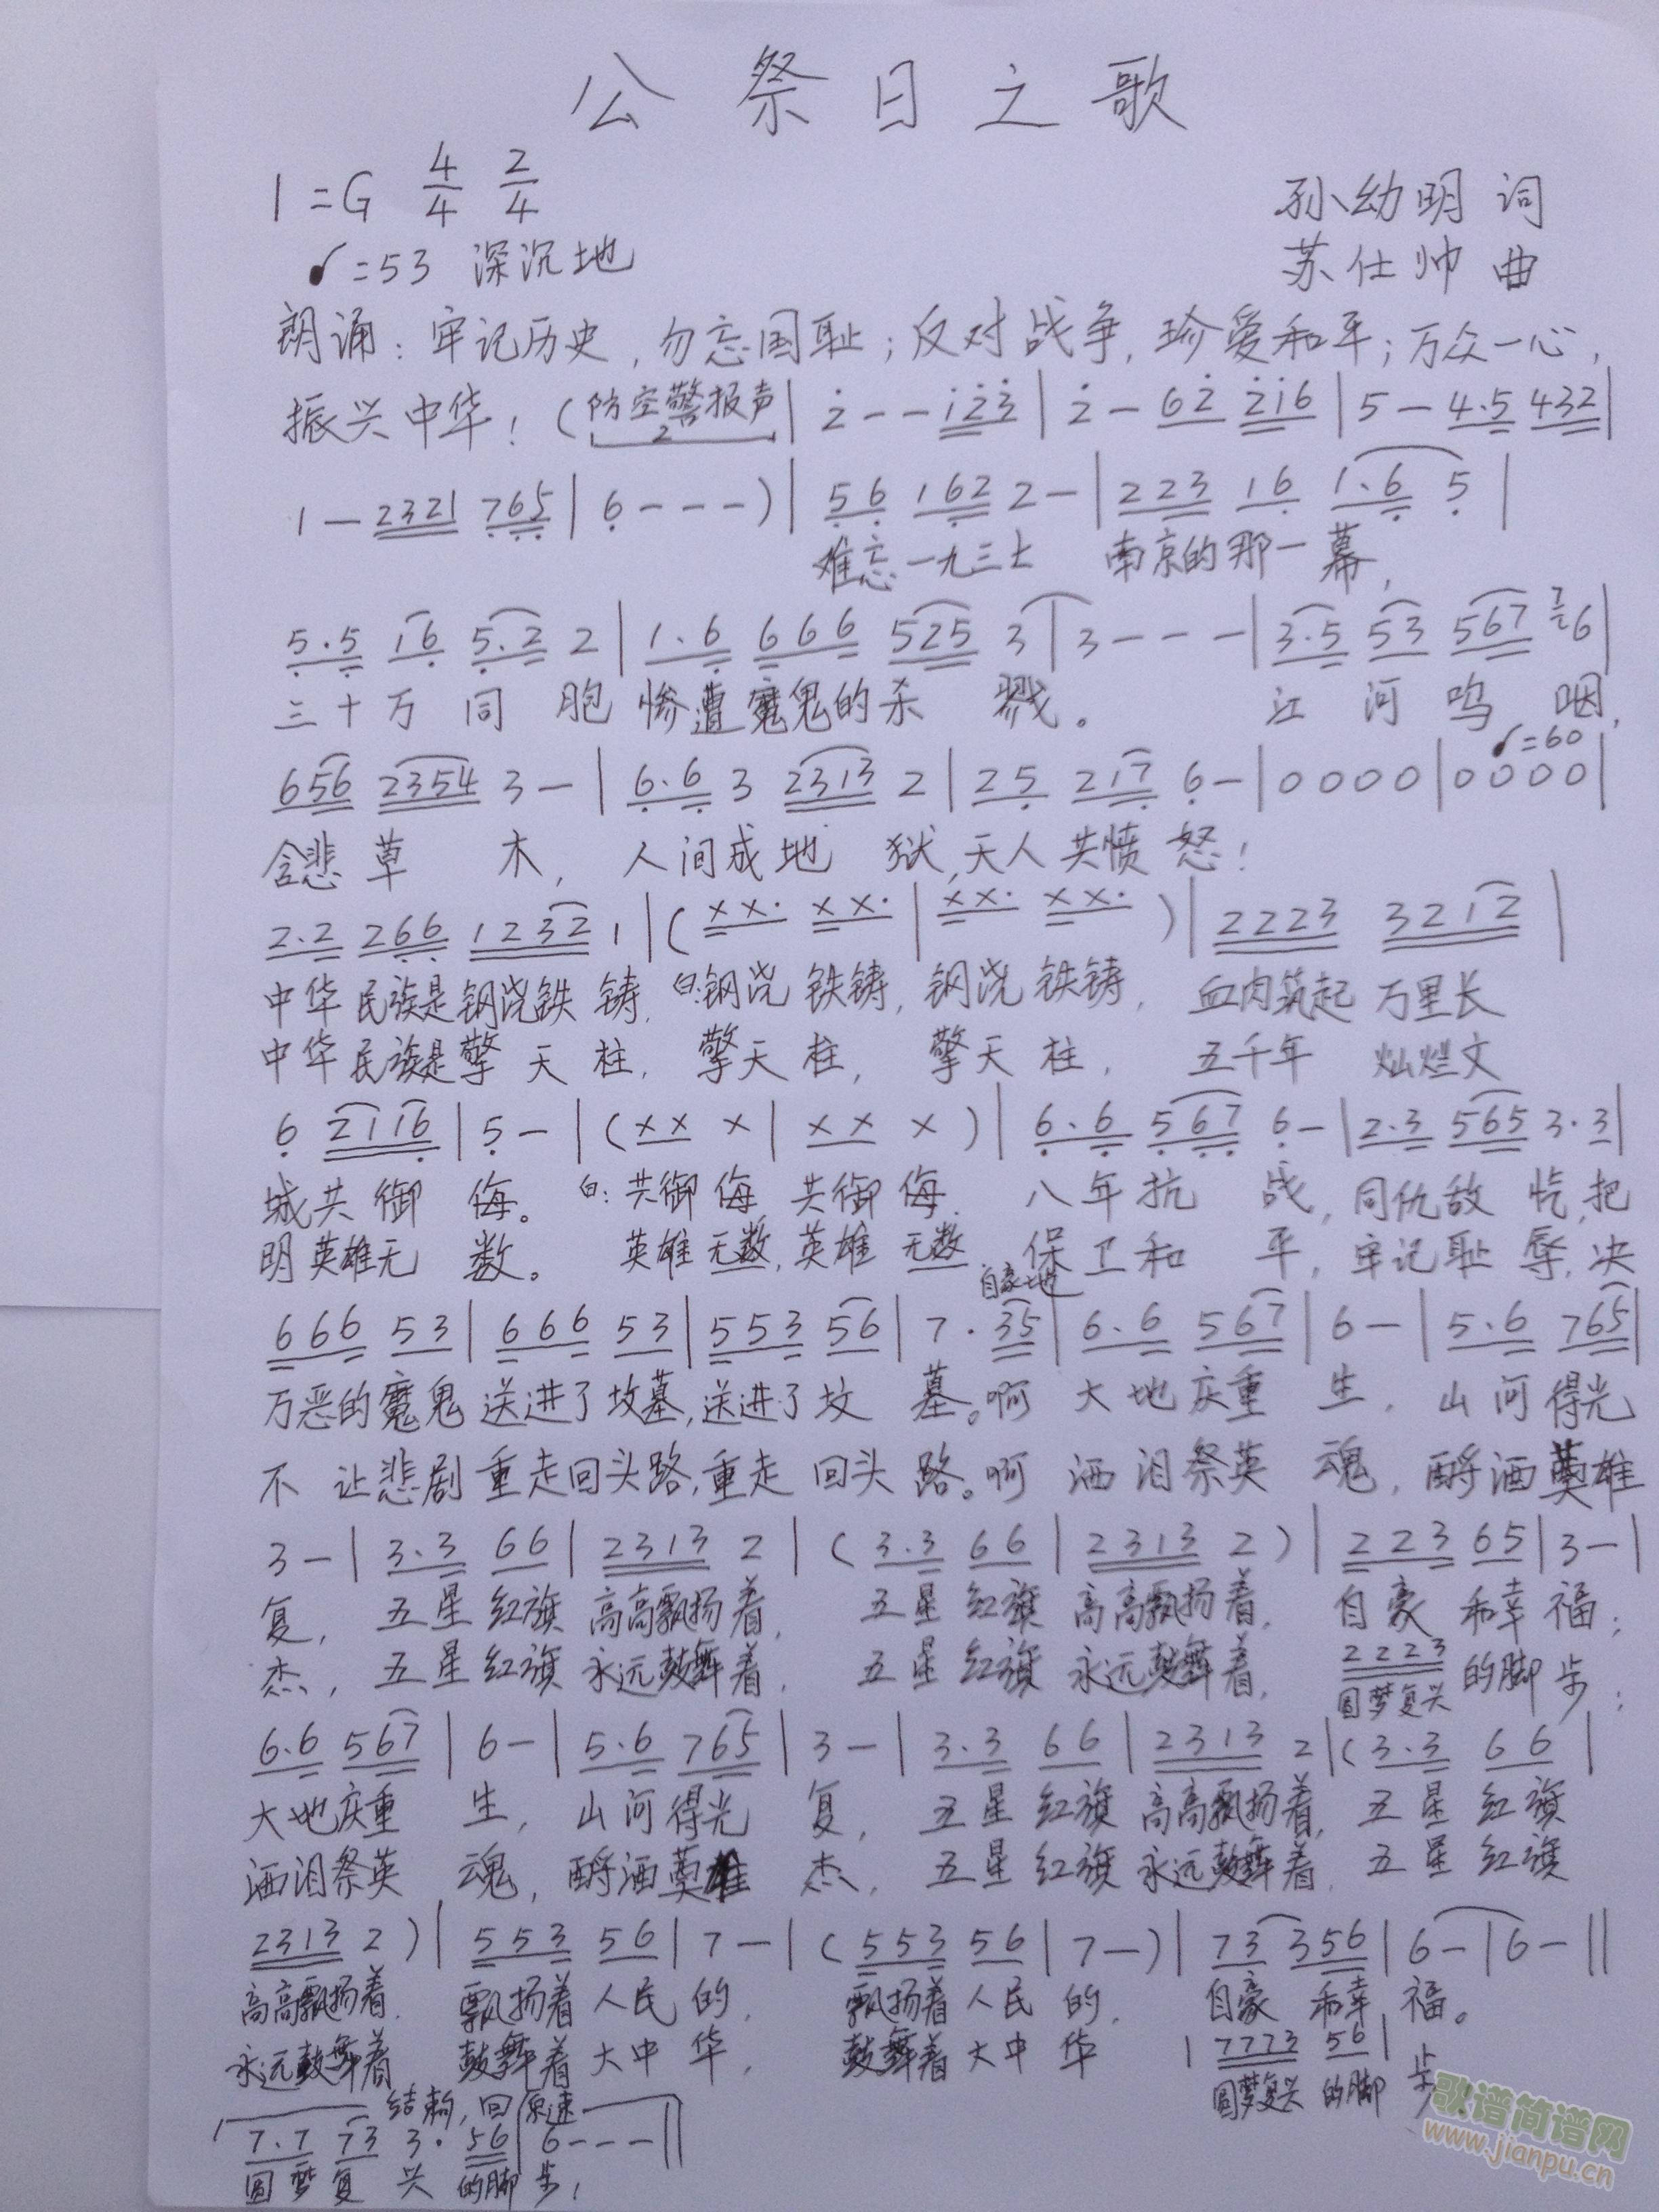 公祭日之歌
1=G 4/4 2/4
孙幼明 词
♩=53 深沉地
苏仕帅 曲
朗诵：牢记历史，勿忘国耻；反对战争，珍爱和平；万众一心，
振兴中华！（防空警报声 2 | 2̇ - - 1̇2̇3̇ | 2̇ - 62̇ 2̇1̇6 | 5 - 4.5 432 |
1 - 2321 765 | 6 - - - ) | 56 162 2 - | 223 16 1.6 5 |
难忘一九三七 南京的那一幕，
5.5 16 5.2 2 | 1.6 666 525 3 | 3 - - - | 3.5 53 567 7 6 |
三十万同胞惨遭魔鬼的杀戮。 江河呜咽，
♩=60
656 2354 3 - | 6.6 3 2313 2 | 25 217 6 - | 0 0 0 0 | 0 0 0 0 |
含悲草木，人间成地狱，天人共愤怒！
2.2 266 1232 1 | ( xx. xx. | xx. xx. ) | 2223 3212 |
中华民族是钢浇铁铸，白:钢浇铁铸，钢浇铁铸， 血肉筑起万里长
中华民族是擎天柱，擎天柱，擎天柱， 五千年 灿烂文
6 2116 | 5 - | ( xx x | xx x ) | 6.6 567 6 - | 2.3 565 3.3 |
城共御侮。白:共御侮，共御侮. 八年抗战，同仇敌忾，把
明英雄无数。 英雄无数，英雄无数. 保卫和平，牢记耻辱，决
自豪地
666 53 | 666 53 | 553 56 | 7 . 35 | 6.6 567 | 6 - | 5.6 765 |
万恶的魔鬼送进了坟墓，送进了坟墓。啊 大地庆重生，山河得光
不让悲剧重走回头路，重走回头路。啊 洒泪祭英魂，酹酒奠雄
3 - | 3.3 66 | 2313 2 | ( 3.3 66 | 2313 2 ) | 223 65 | 3 - |
复，五星红旗高高飘扬着， 五星红旗高高飘扬着， 自豪和幸福；
2223
杰，五星红旗永远鼓舞着， 五星红旗永远鼓舞着， 圆梦复兴的脚步；
6.6 567 | 6 - | 5.6 765 | 3 - | 3.3 66 | 2313 2 | ( 3.3 66 |
大地庆重生，山河得光复，五星红旗高高飘扬着，五星红旗
洒泪祭英魂，酹酒奠雄杰，五星红旗永远鼓舞着，五星红旗
2313 2 ) | 553 56 | 7 - | ( 553 56 | 7 - ) | 73 356 | 6 - | 6 - ||
高高飘扬着. 飘扬着人民的， 飘扬着人民的， 自豪和幸福。
| 7773 56 |
永远鼓舞着 鼓舞着大中华， 鼓舞着大中华 圆梦复兴的脚步
结束，回原速
7.7 73 3. 56 | 6 - - - ||
圆梦复兴的脚步！
歌谱简谱网
www.jianpu.cn